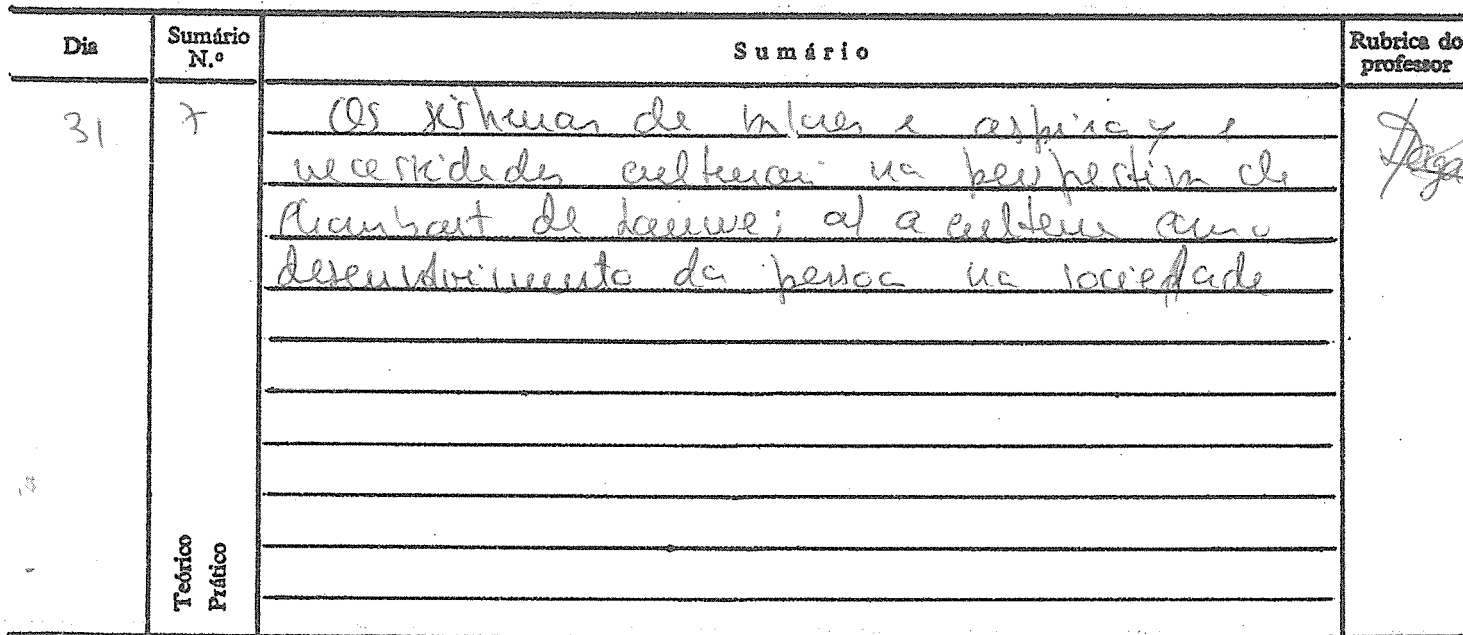 Dia
Sumário N.º
Sumário
Rubrica do professor
31
7
Os sistemas de valores e aspirações e
necessidades culturais na perspectiva de
Chombart de Lauwe: a) a cultura como
desenvolvimento da pessoa na sociedade
Teórico
Prático